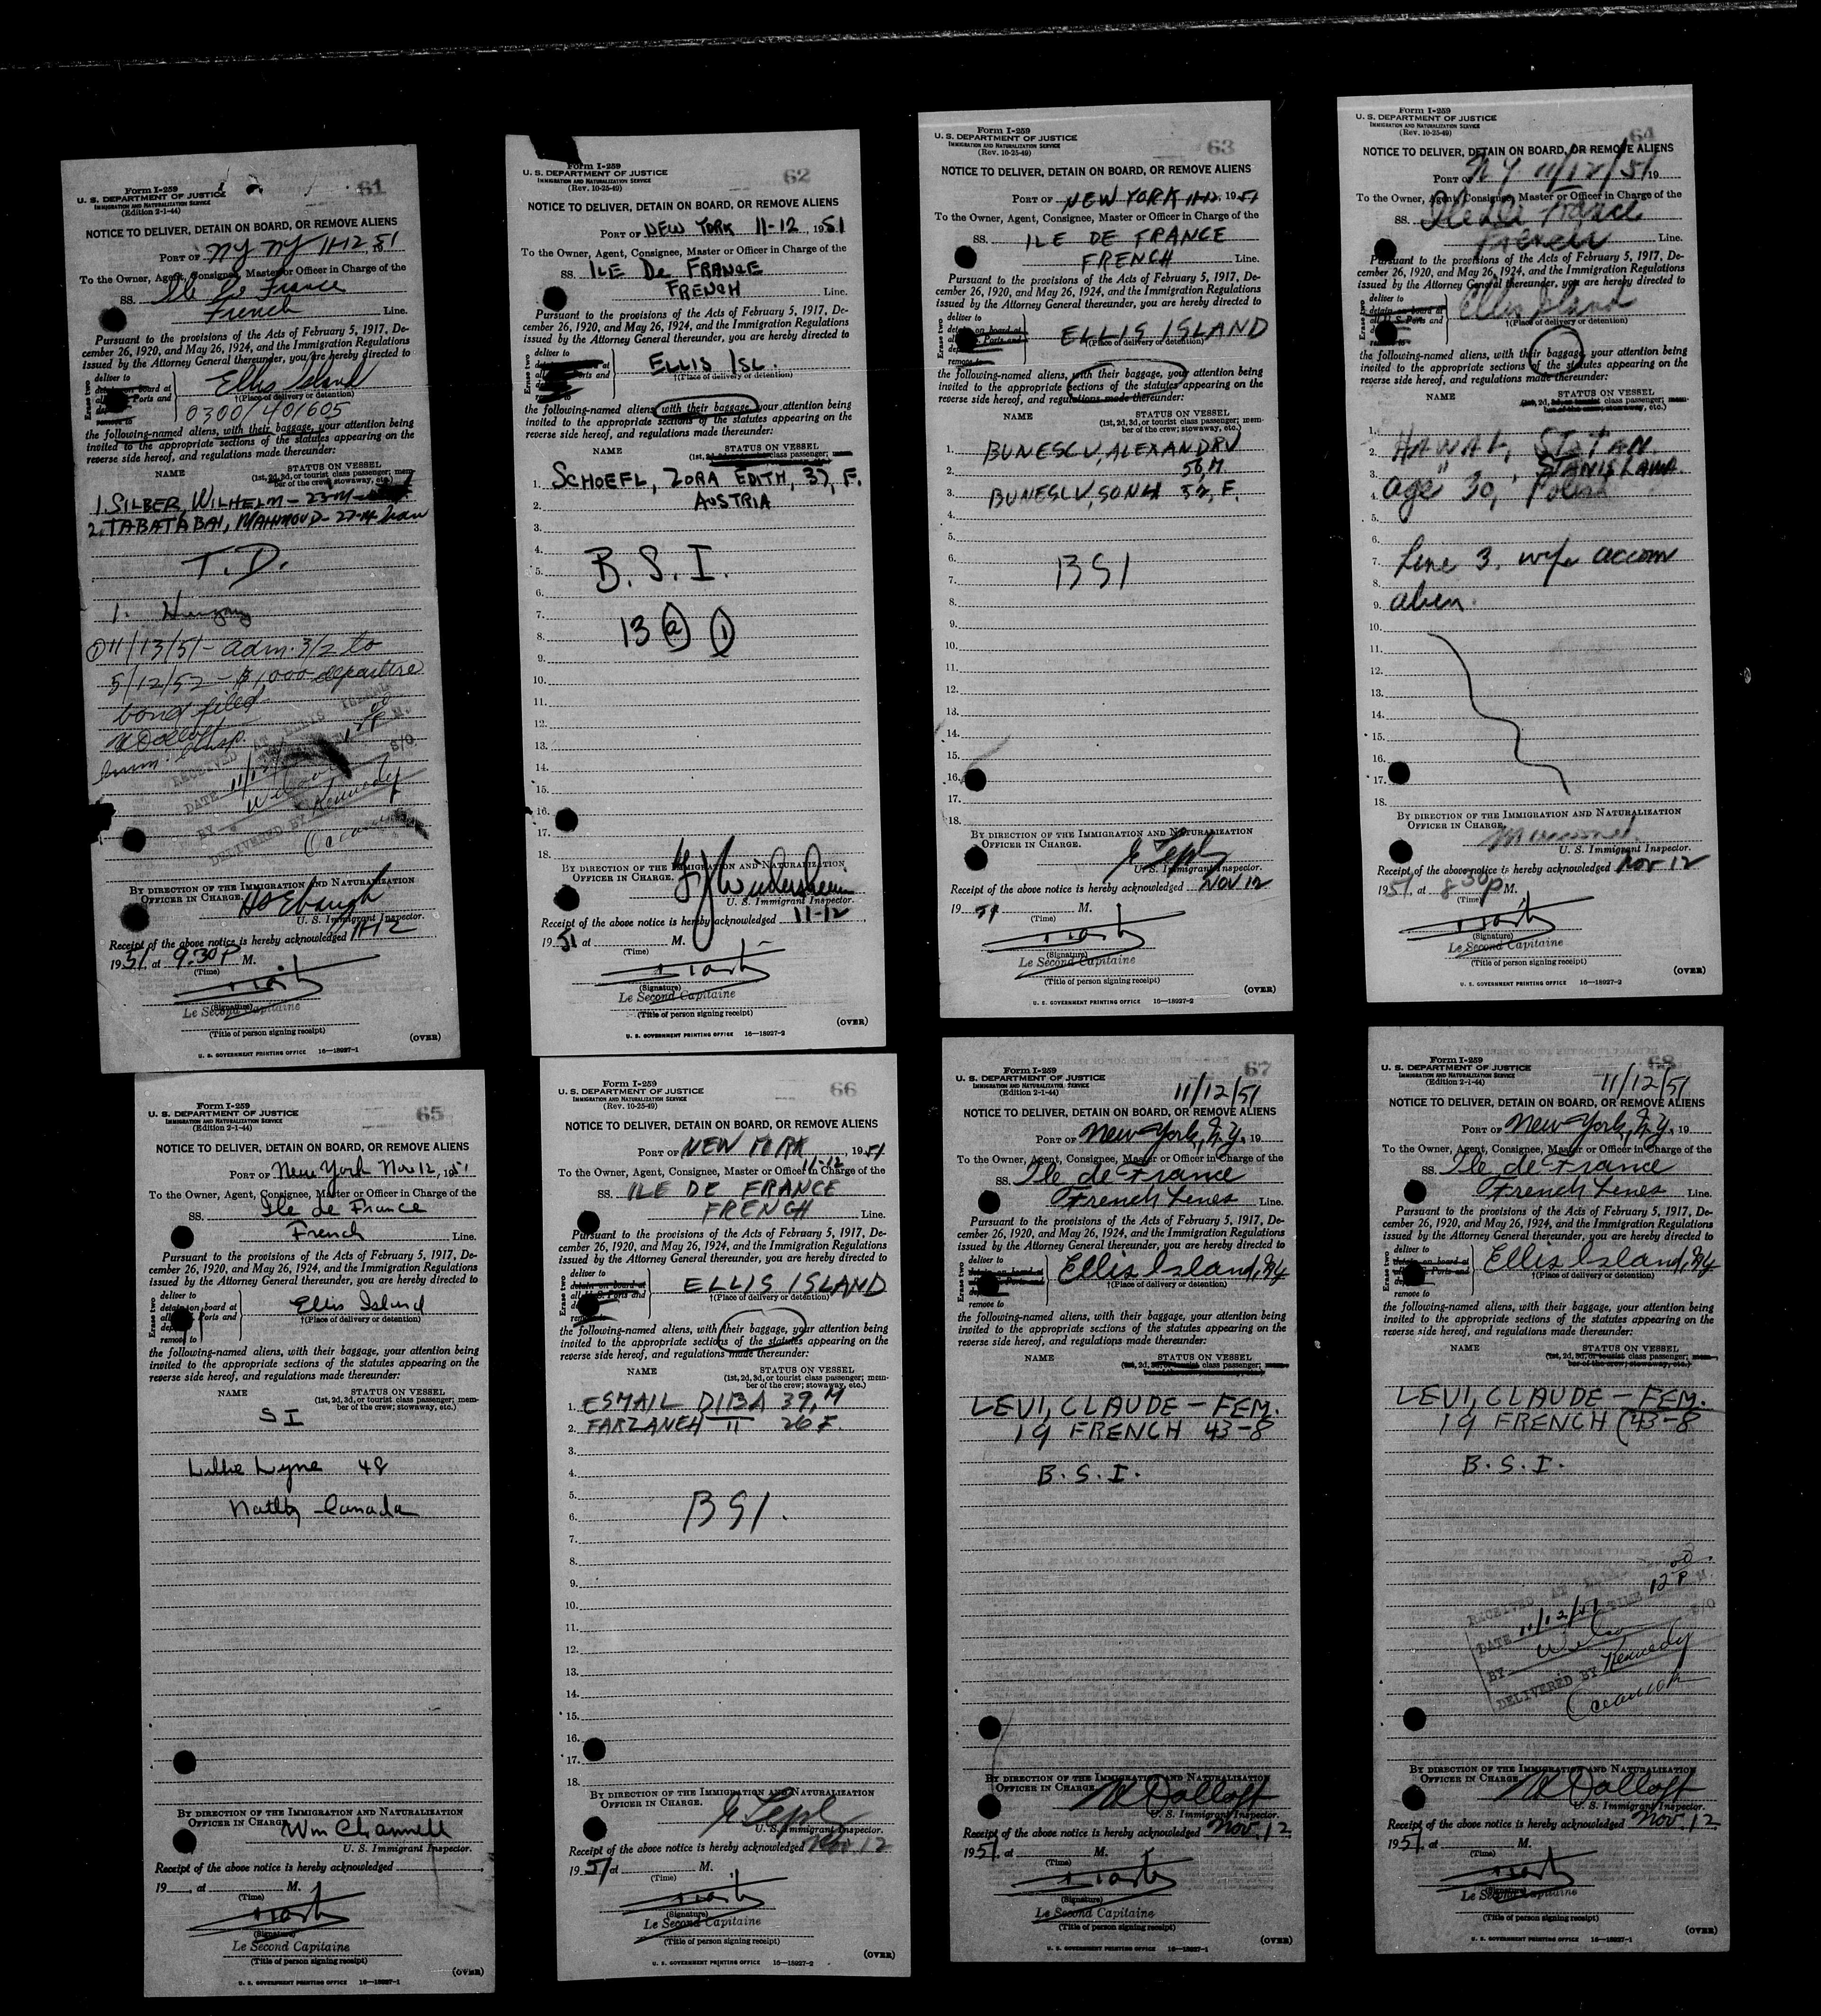 61
Form I-259
U. S. DEPARTMENT OF JUSTICE
IMMIGRATION AND NATURALIZATION SERVICE
(Edition 2-1-44)
NOTICE TO DELIVER, DETAIN ON BOARD, OR REMOVE ALIENS
PORT OF NY NY 11-12 51
To the Owner, Agent, Consignee, Master or Officer in Charge of the
SS. Ile De France
French Line.
Pursuant to the provisions of the Acts of February 5, 1917, De-
cember 26, 1920, and May 26, 1924, and the Immigration Regulations
issued by the Attorney General thereunder, you are hereby directed to
Erase two
deliver to
detain on board at
Ports and
remove to
Ellis Island
†(Place of delivery or detention)
0300/401605
the following-named aliens, with their baggage, your attention being
invited to the appropriate sections of the statutes appearing on the
reverse side hereof, and regulations made thereunder:
NAME STATUS ON VESSEL
(1st, 2d, 3d, or tourist class passenger; mem-
ber of the crew; stowaway, etc.)
1. SILBER, WILHELM - 23-M-
2. TABATABAI, MAHMOUD - 27-M Iran
T.D.
1. Hungary
① 11/13/51 - adm. 3/2 to
5/12/52 - $1,000 departure
bond filed
Imm. Insp.
RECEIVED AT ELLIS ISLAND
DATE 11/12
BY
DELIVERED BY Kennedy
BY DIRECTION OF THE IMMIGRATION AND NATURALIZATION
OFFICER IN CHARGE.
HS Ebaugh
U. S. Immigrant Inspector.
Receipt of the above notice is hereby acknowledged 11-12
1951, at 9.30 P M.
(Time)
(Signature)
Le Second Capitaine
(Title of person signing receipt)
(OVER)
U. S. GOVERNMENT PRINTING OFFICE 16—18927-1
62
Form I-259
U. S. DEPARTMENT OF JUSTICE
IMMIGRATION AND NATURALIZATION SERVICE
(Rev. 10-25-49)
NOTICE TO DELIVER, DETAIN ON BOARD, OR REMOVE ALIENS
PORT OF NEW YORK 11-12, 1951
To the Owner, Agent, Consignee, Master or Officer in Charge of the
SS. ILE De FRANCE
FRENCH Line.
Pursuant to the provisions of the Acts of February 5, 1917, De-
cember 26, 1920, and May 26, 1924, and the Immigration Regulations
issued by the Attorney General thereunder, you are hereby directed to
Erase two
deliver to
at
Ports and
ELLIS ISL.
†(Place of delivery or detention)
the following-named aliens, with their baggage, your attention being
invited to the appropriate sections of the statutes appearing on the
reverse side hereof, and regulations made thereunder:
NAME STATUS ON VESSEL
(1st, class passenger;
1. SCHOEFL, ZORA EDITH, 37, F.
2. AUSTRIA
3.
4.
5. B.S.I.
6.
7.
8. 13 (a) (1)
9.
10.
11.
12.
13.
14.
15.
16.
17.
18.
BY DIRECTION OF THE IMMIGRATION AND NATURALIZATION
OFFICER IN CHARGE.
U. S. Immigrant Inspector.
Receipt of the above notice is hereby acknowledged 11-12
1951 at M.
(Time)
(Signature)
Le Second Capitaine
(Title of person signing receipt)
(OVER)
U. S. GOVERNMENT PRINTING OFFICE 16—18927-2
63
Form I-259
U. S. DEPARTMENT OF JUSTICE
IMMIGRATION AND NATURALIZATION SERVICE
(Rev. 10-25-49)
NOTICE TO DELIVER, DETAIN ON BOARD, OR REMOVE ALIENS
PORT OF NEW YORK 11-12, 1951
To the Owner, Agent, Consignee, Master or Officer in Charge of the
SS. ILE DE FRANCE
FRENCH Line.
Pursuant to the provisions of the Acts of February 5, 1917, De-
cember 26, 1920, and May 26, 1924, and the Immigration Regulations
issued by the Attorney General thereunder, you are hereby directed to
Erase two
deliver to
detain on board at
Ports and
remove to
ELLIS ISLAND
†(Place of delivery or detention)
the following-named aliens, with their baggage, your attention being
invited to the appropriate sections of the statutes appearing on the
reverse side hereof, and regulations made thereunder:
NAME STATUS ON VESSEL
(1st, 2d, 3d, or tourist class passenger; mem-
ber of the crew; stowaway, etc.)
1. BUNESCU, ALEXANDRU
2. 56, M
3. BUNESCU, SONIA 52, F.
4.
5.
6.
7. BSI
8.
9.
10.
11.
12.
13.
14.
15.
16.
17.
18.
BY DIRECTION OF THE IMMIGRATION AND NATURALIZATION
OFFICER IN CHARGE.
U. S. Immigrant Inspector.
Receipt of the above notice is hereby acknowledged NOV 12
1951 M.
(Time)
(Signature)
Le Second Capitaine
(Title of person signing receipt)
(OVER)
U. S. GOVERNMENT PRINTING OFFICE 16—18927-2
64
Form I-259
U. S. DEPARTMENT OF JUSTICE
IMMIGRATION AND NATURALIZATION SERVICE
(Rev. 10-25-49)
NOTICE TO DELIVER, DETAIN ON BOARD, OR REMOVE ALIENS
PORT OF N Y 11/12/51 19
To the Owner, Agent, Consignee, Master or Officer in Charge of the
SS. Ile de France
French Line.
Pursuant to the provisions of the Acts of February 5, 1917, De-
cember 26, 1920, and May 26, 1924, and the Immigration Regulations
issued by the Attorney General thereunder, you are hereby directed to
Erase two
deliver to
detain on board at
all U. S. Ports and
remove to
Ellis Island
†(Place of delivery or detention)
the following-named aliens, with their baggage, your attention being
invited to the appropriate sections of the statutes appearing on the
reverse side hereof, and regulations made thereunder:
NAME STATUS ON VESSEL
(1st, 2d, 3d, or tourist class passenger; mem-
ber of the crew; stowaway, etc.)
1.
2. HAWAT,
3. "
4. age 30, Polish
5.
6.
7. Line 3. wife accom
8.
9. alien.
10.
11.
12.
13.
14.
15.
16.
17.
18.
BY DIRECTION OF THE IMMIGRATION AND NATURALIZATION
OFFICER IN CHARGE.
U. S. Immigrant Inspector.
Receipt of the above notice is hereby acknowledged Nov 12
1951 at 8 30 P M.
(Time)
(Signature)
Le Second Capitaine
(Title of person signing receipt)
(OVER)
U. S. GOVERNMENT PRINTING OFFICE 16—18927-2
65
Form I-259
U. S. DEPARTMENT OF JUSTICE
IMMIGRATION AND NATURALIZATION SERVICE
(Edition 2-1-44)
NOTICE TO DELIVER, DETAIN ON BOARD, OR REMOVE ALIENS
PORT OF New York Nov 12, 1951
To the Owner, Agent, Consignee, Master or Officer in Charge of the
SS. Ile de France
French Line.
Pursuant to the provisions of the Acts of February 5, 1917, De-
cember 26, 1920, and May 26, 1924, and the Immigration Regulations
issued by the Attorney General thereunder, you are hereby directed to
Erase two
deliver to
detain on board at
Ports and
remove to
Ellis Island
†(Place of delivery or detention)
the following-named aliens, with their baggage, your attention being
invited to the appropriate sections of the statutes appearing on the
reverse side hereof, and regulations made thereunder:
NAME STATUS ON VESSEL
(1st, 2d, 3d, or tourist class passenger; mem-
ber of the crew; stowaway, etc.)
S I
Lillie Lyne 48
Natlty Canada
BY DIRECTION OF THE IMMIGRATION AND NATURALIZATION
OFFICER IN CHARGE.
Wm Channell
U. S. Immigrant Inspector.
Receipt of the above notice is hereby acknowledged
19 , at M.
(Time)
(Signature)
Le Second Capitaine
(Title of person signing receipt)
(OVER)
U. S. GOVERNMENT PRINTING OFFICE 16—18927-1
66
Form I-259
U. S. DEPARTMENT OF JUSTICE
IMMIGRATION AND NATURALIZATION SERVICE
(Rev. 10-25-49)
NOTICE TO DELIVER, DETAIN ON BOARD, OR REMOVE ALIENS
PORT OF NEW YORK, 1951
11-12
To the Owner, Agent, Consignee, Master or Officer in Charge of the
SS. ILE DE FRANCE
FRENCH Line.
Pursuant to the provisions of the Acts of February 5, 1917, De-
cember 26, 1920, and May 26, 1924, and the Immigration Regulations
issued by the Attorney General thereunder, you are hereby directed to
Erase two
deliver to
detain on board at
all U. S. Ports and
remove to
ELLIS ISLAND
†(Place of delivery or detention)
the following-named aliens, with their baggage, your attention being
invited to the appropriate sections of the statutes appearing on the
reverse side hereof, and regulations made thereunder:
NAME STATUS ON VESSEL
(1st, 2d, 3d, or tourist class passenger; mem-
ber of the crew; stowaway, etc.)
1. ESMAIL DIBA 39, M
2. FARZANEH " 26 F.
3.
4.
5.
6. BSI.
7.
8.
9.
10.
11.
12.
13.
14.
15.
16.
17.
18.
BY DIRECTION OF THE IMMIGRATION AND NATURALIZATION
OFFICER IN CHARGE.
U. S. Immigrant Inspector.
Receipt of the above notice is hereby acknowledged Nov. 12
1951 at M.
(Time)
(Signature)
Le Second Capitaine
(Title of person signing receipt)
(OVER)
U. S. GOVERNMENT PRINTING OFFICE 16—18927-2
67
Form I-259
U. S. DEPARTMENT OF JUSTICE
IMMIGRATION AND NATURALIZATION SERVICE
(Edition 2-1-44)
11/12/51
NOTICE TO DELIVER, DETAIN ON BOARD, OR REMOVE ALIENS
PORT OF New York, N.Y., 19
To the Owner, Agent, Consignee, Master or Officer in Charge of the
SS. Ile de France
French Lines Line.
Pursuant to the provisions of the Acts of February 5, 1917, De-
cember 26, 1920, and May 26, 1924, and the Immigration Regulations
issued by the Attorney General thereunder, you are hereby directed to
Erase two
deliver to
detain on board at
Ports and
remove to
Ellis Island, NY
†(Place of delivery or detention)
the following-named aliens, with their baggage, your attention being
invited to the appropriate sections of the statutes appearing on the
reverse side hereof, and regulations made thereunder:
NAME STATUS ON VESSEL
(1st, 2d, 3d, or tourist class passenger; mem-
LEVI, CLAUDE - FEM.
19 FRENCH 43-8
B.S.I.
BY DIRECTION OF THE IMMIGRATION AND NATURALIZATION
OFFICER IN CHARGE.
U. S. Immigrant Inspector.
Receipt of the above notice is hereby acknowledged Nov. 12
1951, at M.
(Time)
(Signature)
Le Second Capitaine
(Title of person signing receipt)
(OVER)
U. S. GOVERNMENT PRINTING OFFICE 16—18927-1
68
Form I-259
U. S. DEPARTMENT OF JUSTICE
IMMIGRATION AND NATURALIZATION SERVICE
(Edition 2-1-44)
11/12/51
NOTICE TO DELIVER, DETAIN ON BOARD, OR REMOVE ALIENS
PORT OF New York, N.Y., 19
To the Owner, Agent, Consignee, Master or Officer in Charge of the
SS. Ile de France
French Lines Line.
Pursuant to the provisions of the Acts of February 5, 1917, De-
cember 26, 1920, and May 26, 1924, and the Immigration Regulations
issued by the Attorney General thereunder, you are hereby directed to
Erase two
deliver to
detain on board at
Ports and
remove to
Ellis Island, NY
†(Place of delivery or detention)
the following-named aliens, with their baggage, your attention being
invited to the appropriate sections of the statutes appearing on the
reverse side hereof, and regulations made thereunder:
NAME STATUS ON VESSEL
(1st, 2d, 3d, or tourist class passenger; mem-
ber of the crew; stowaway, etc.)
LEVI, CLAUDE - FEM.
19 FRENCH (43-8
B.S.I.
RECEIVED AT
DATE 11/12/51 TIME 12 00 P M.
BY S/O
DELIVERED BY Kennedy
BY DIRECTION OF THE IMMIGRATION AND NATURALIZATION
OFFICER IN CHARGE.
U. S. Immigrant Inspector.
Receipt of the above notice is hereby acknowledged Nov. 12
1951, at M.
(Time)
(Signature)
Le Second Capitaine
(Title of person signing receipt)
(OVER)
U. S. GOVERNMENT PRINTING OFFICE 16—18927-1